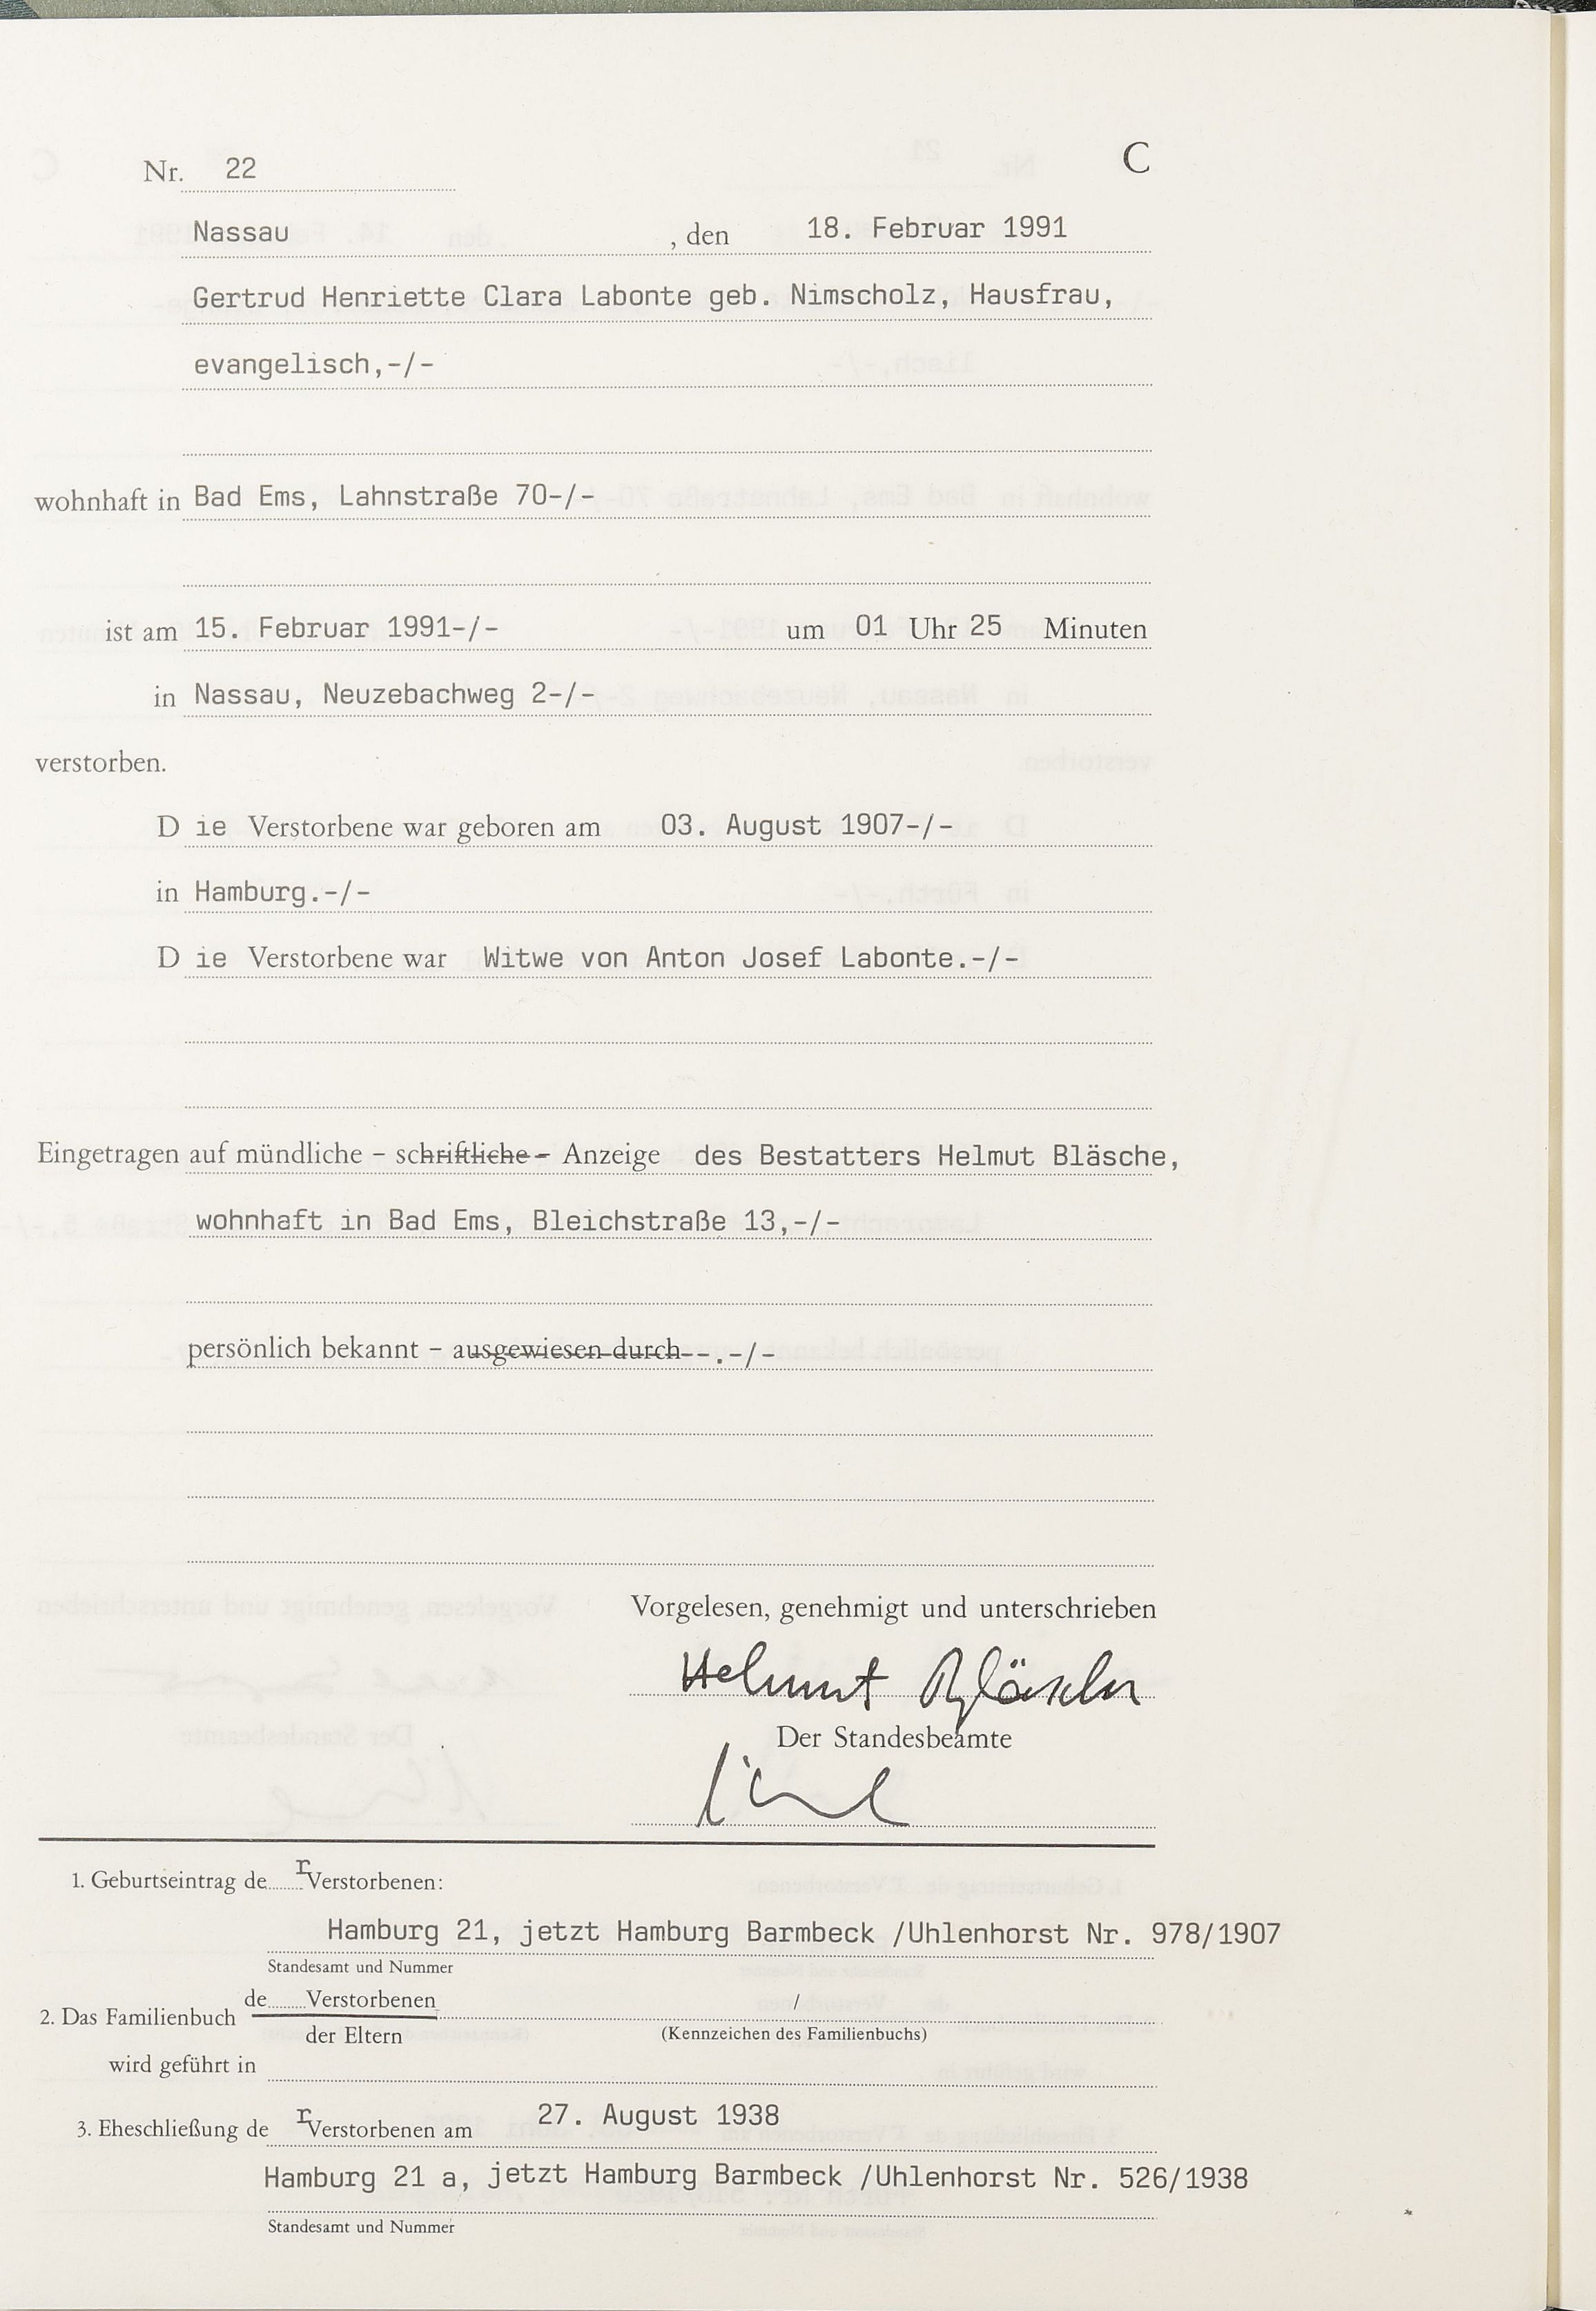 Nr. 22 C
Nassau , den 18. Februar 1991
Gertrud Henriette Clara Labonte geb. Nimscholz, Hausfrau,
evangelisch,-/-
wohnhaft in Bad Ems, Lahnstraße 70-/-
ist am 15. Februar 1991-/- um 01 Uhr 25 Minuten
in Nassau, Neuzebachweg 2-/-
verstorben.
D ie Verstorbene war geboren am 03. August 1907-/-
in Hamburg.-/-
D ie Verstorbene war Witwe von Anton Josef Labonte.-/-
Eingetragen auf mündliche - schriftliche - Anzeige des Bestatters Helmut Bläsche,
wohnhaft in Bad Ems, Bleichstraße 13,-/-
persönlich bekannt - ausgewiesen durch--.-/-
Vorgelesen, genehmigt und unterschrieben
Helmut Bläsche
Der Standesbeamte
1. Geburtseintrag de r Verstorbenen:
Hamburg 21, jetzt Hamburg Barmbeck /Uhlenhorst Nr. 978/1907
Standesamt und Nummer
de Verstorbenen /
2. Das Familienbuch
der Eltern (Kennzeichen des Familienbuchs)
wird geführt in
3. Eheschließung de r Verstorbenen am 27. August 1938
Hamburg 21 a, jetzt Hamburg Barmbeck /Uhlenhorst Nr. 526/1938
Standesamt und Nummer